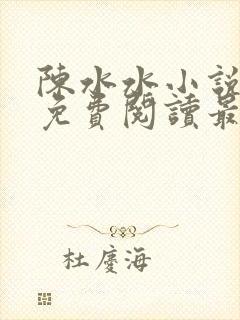 陳水水小說
免費閱讀最
杜慶海